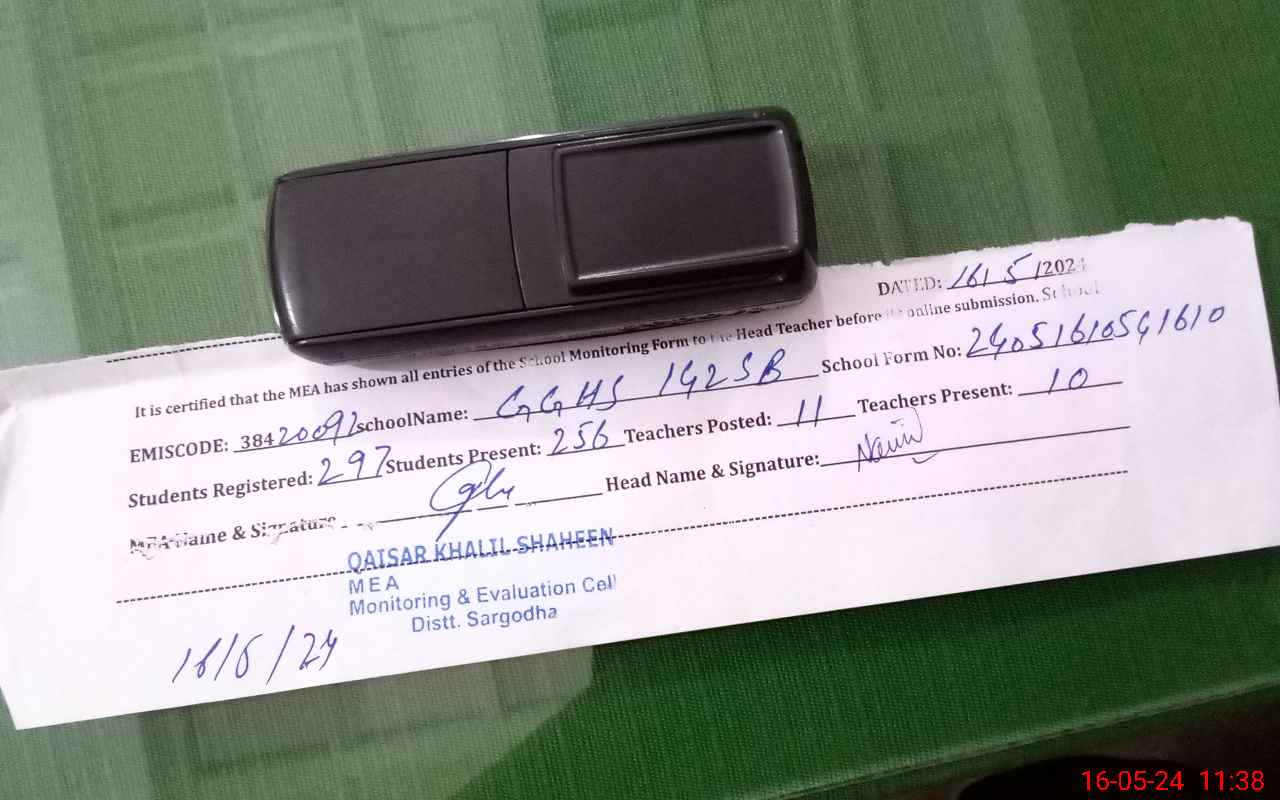 DATED: 16/5/2024
It is certified that the MEA has shown all entries of the School Monitoring Form to the Head Teacher before its online submission. School
EMISCODE: 38420092 SchoolName: GGHS 142SB School Form No:
Students Registered: 297 Students Present: 256 Teachers Posted: 11 Teachers Present: 10
MEA Name & Signature Head Name & Signature:
QAISAR KHALIL SHAHEEN
MEA
Monitoring & Evaluation Cell
Distt. Sargodha
16/5/24
16-05-24 11:38